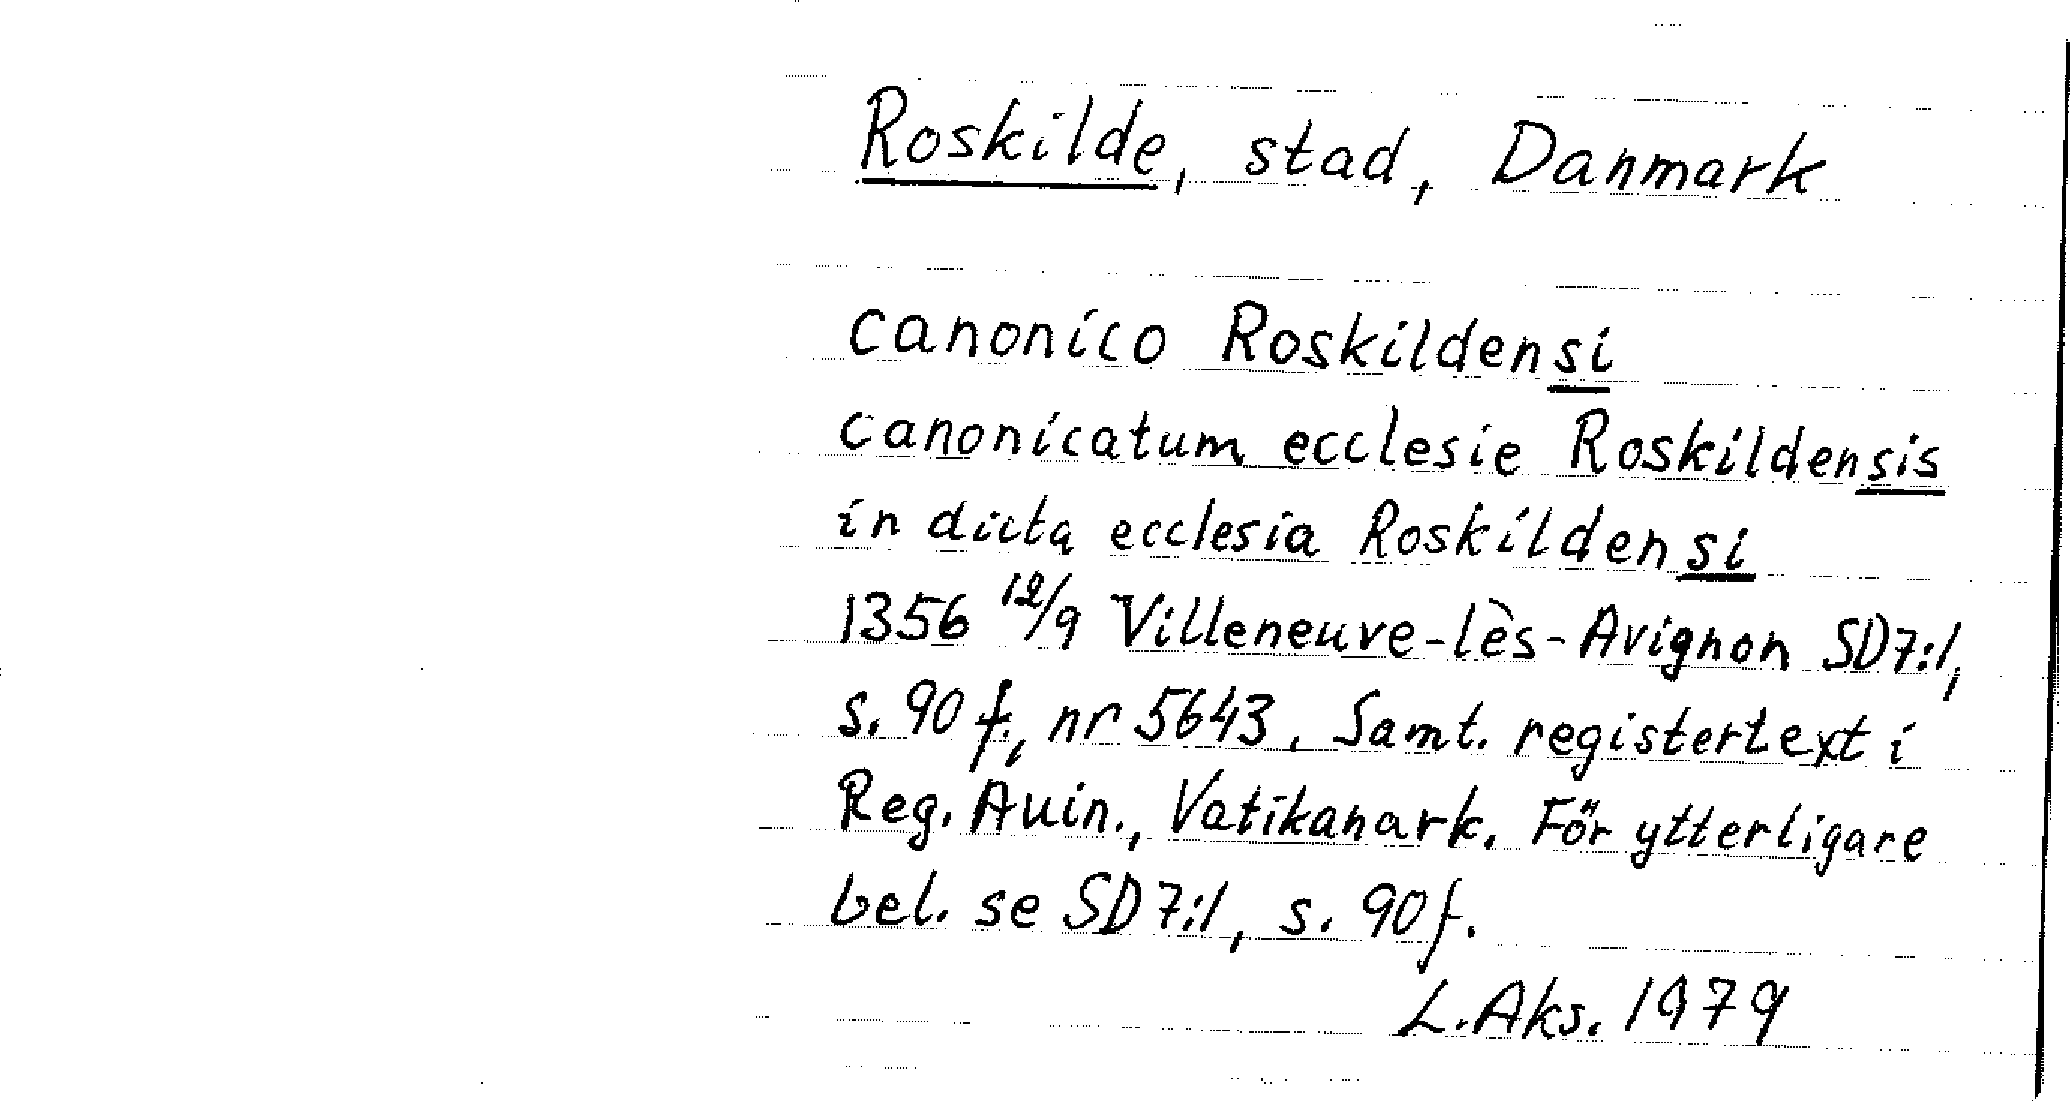 Roskilde, stad, Danmark
canonico Roskildensi
canonicatum ecclesie Roskildensis
in dicta ecclesia Roskildensi
1356 12/9 Villeneuve-lès-Avignon SD7:1,
s. 90 f., nr 5643. Samt. registertext i
Reg. Auin., Vatikanark. För ytterligare
bel. se SD 7:1, s. 90f.
L. Aks. 1979